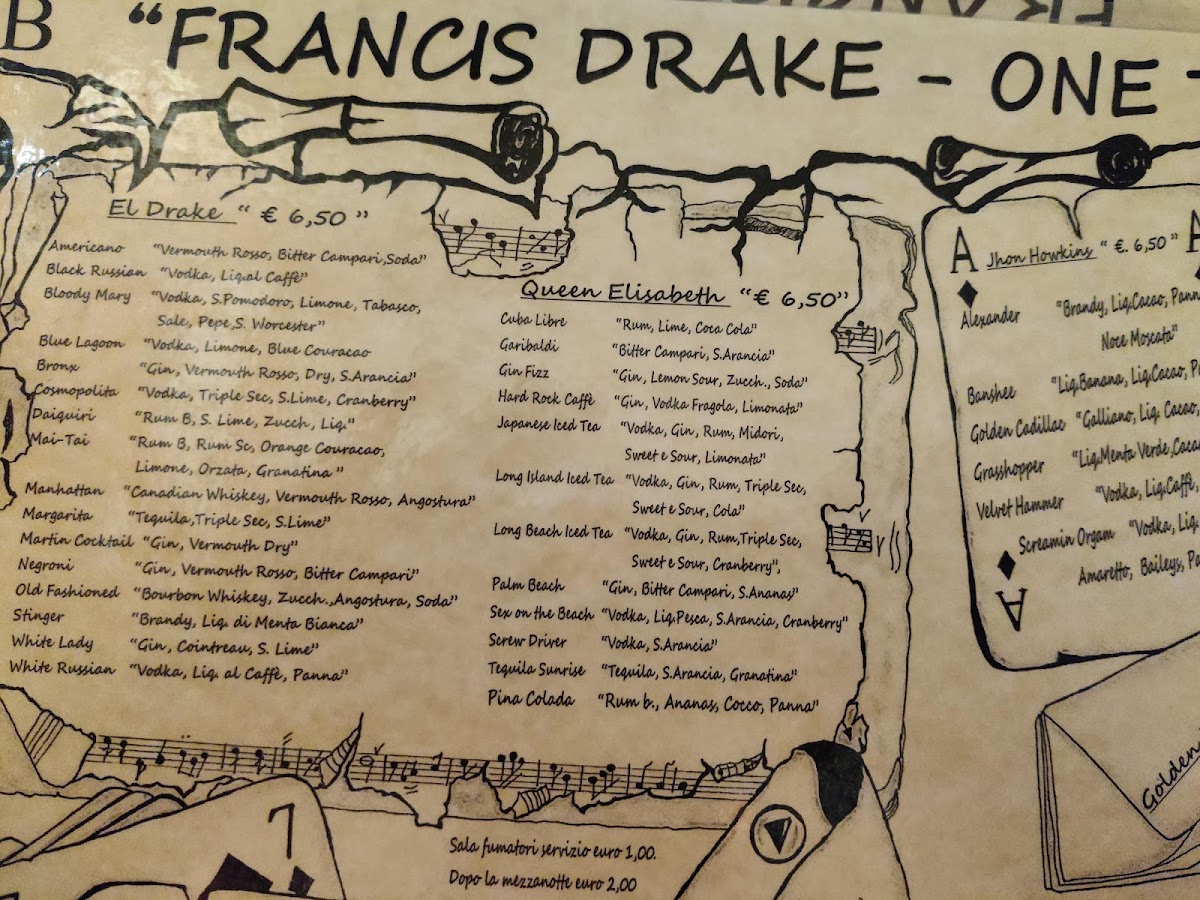 B "FRANCIS DRAKE - ONE -
El Drake " € 6,50 "
Americano "Vermouth Rosso, Bitter Campari,Soda"
Black Russian "Vodka, Liq.al Caffè"
Bloody Mary "Vodka, S.Pomodoro, Limone, Tabasco,
Sale, Pepe,S. Worcester"
Blue Lagoon "Vodka, Limone, Blue Couracao
Bronx "Gin, Vermouth Rosso, Dry, S.Arancia"
Cosmopolita "Vodka, Triple Sec, S.Lime, Cranberry"
Daiquiri "Rum B, S. Lime, Zucch, Liq."
Mai-Tai "Rum B, Rum Sc, Orange Couracao,
Limone, Orzata, Granatina "
Manhattan "Canadian Whiskey, Vermouth Rosso, Angostura"
Margarita "Tequila,Triple Sec, S.Lime"
Martin Cocktail "Gin, Vermouth Dry"
Negroni "Gin, Vermouth Rosso, Bitter Campari"
Old Fashioned "Bourbon Whiskey, Zucch.,Angostura, Soda"
Stinger "Brandy, Liq. di Menta Bianca"
White Lady "Gin, Cointreau, S. Lime"
White Russian "Vodka, Liq. al Caffè, Panna"
Queen Elisabeth "€ 6,50"
Cuba Libre "Rum, Lime, Coca Cola"
Garibaldi "Bitter Campari, S.Arancia"
Gin Fizz "Gin, Lemon Sour, Zucch., Soda"
Hard Rock Caffè "Gin, Vodka Fragola, Limonata"
Japanese Iced Tea "Vodka, Gin, Rum, Midori,
Sweet e Sour, Limonata"
Long Island Iced Tea "Vodka, Gin, Rum, Triple Sec,
Sweet e Sour, Cola"
Long Beach Iced Tea "Vodka, Gin, Rum,Triple Sec,
Sweet e Sour, Cranberry",
Palm Beach "Gin, Bitter Campari, S.Ananas"
Sex on the Beach "Vodka, Liq.Pesca, S.Arancia, Cranberry"
Screw Driver "Vodka, S.Arancia"
Tequila Sunrise "Tequila, S.Arancia, Granatina"
Pina Colada "Rum b., Ananas, Cocco, Panna"
A Jhon Howkins " €. 6,50 " A
Alexander "Brandy, Liq.Cacao, Pann
Noce Moscata"
Banshee "Liq.Banana, Liq.Cacao, Pa
Golden Cadillac "Galliano, Liq. Cacao,
Grasshopper "Liq.Menta Verde,Caca
Velvet Hammer "Vodka, Liq.Caffè,
Screamin Orgam "Vodka, Liq.
Amaretto, Baileys, Pa
A
Golden
7
Sala fumatori servizio euro 1,00.
Dopo la mezzanotte euro 2,00